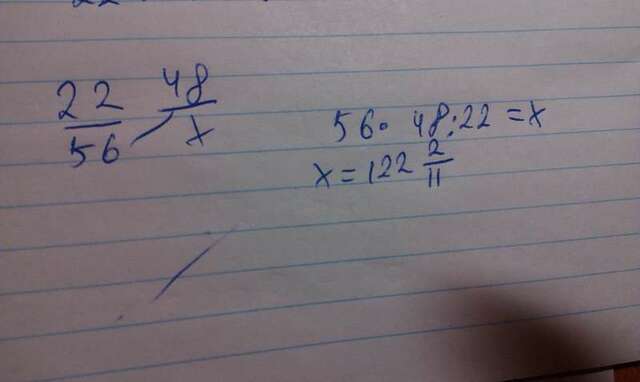 22/56 48/x
56・48:22=x
x=122 2/11